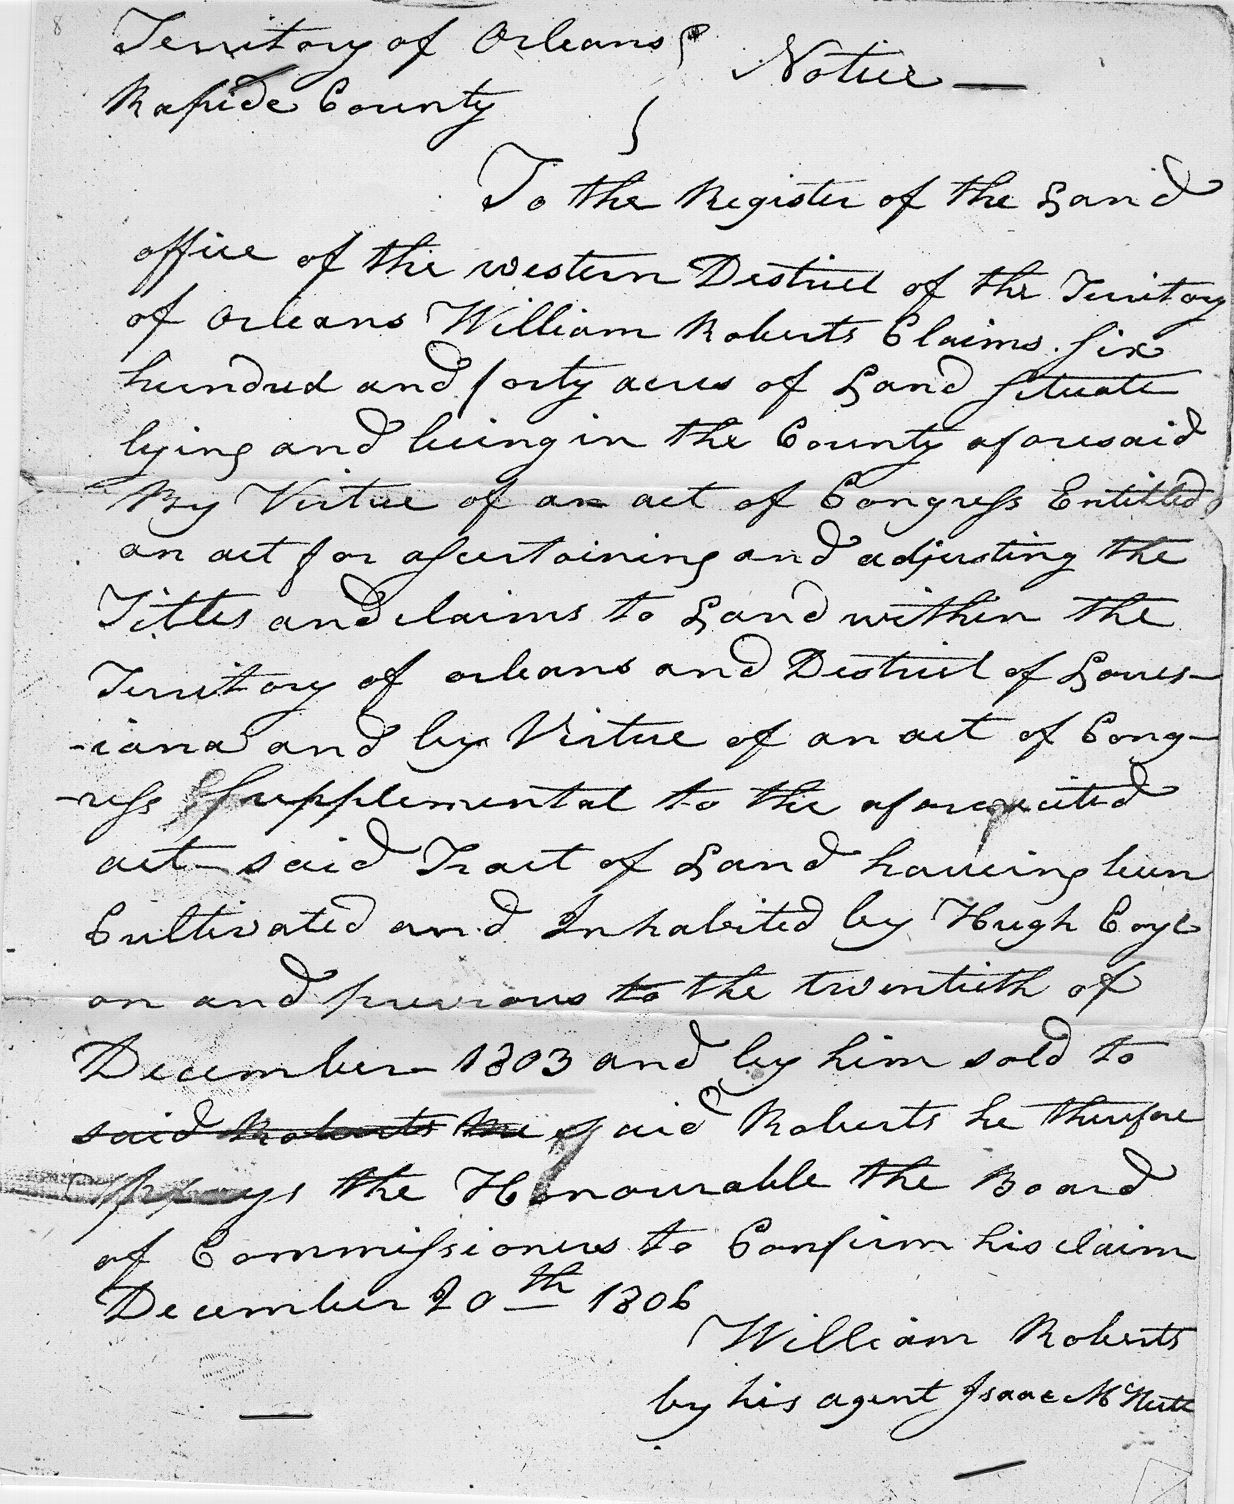 8
Territory of Orleans } Notice —
Rapide County }
To the Register of the Land
office of the western District of the Territory
of Orleans William Roberts Claims Six
hundred and forty acres of Land Situate
lying and being in the County aforesaid
By Virtue of an act of Congress Entitled
an act for ascertaining and adjusting the
Titles and claims to Land within the
Territory of orleans and District of Loues-
-iana and by Virtue of an act of Cong-
-ress Supplemental to the aforerecited
act - said Tract of Land haveing been
Cultivated and Inhabited by Hugh Coyl
on and previous to the twentieth of
December 1803 and by him sold to
said Roberts he said Roberts he therefore
prays the Honourable the Board
of Commissioners to Confirm his claim
December 20th 1806
William Roberts
by his agent Isaac McNutt